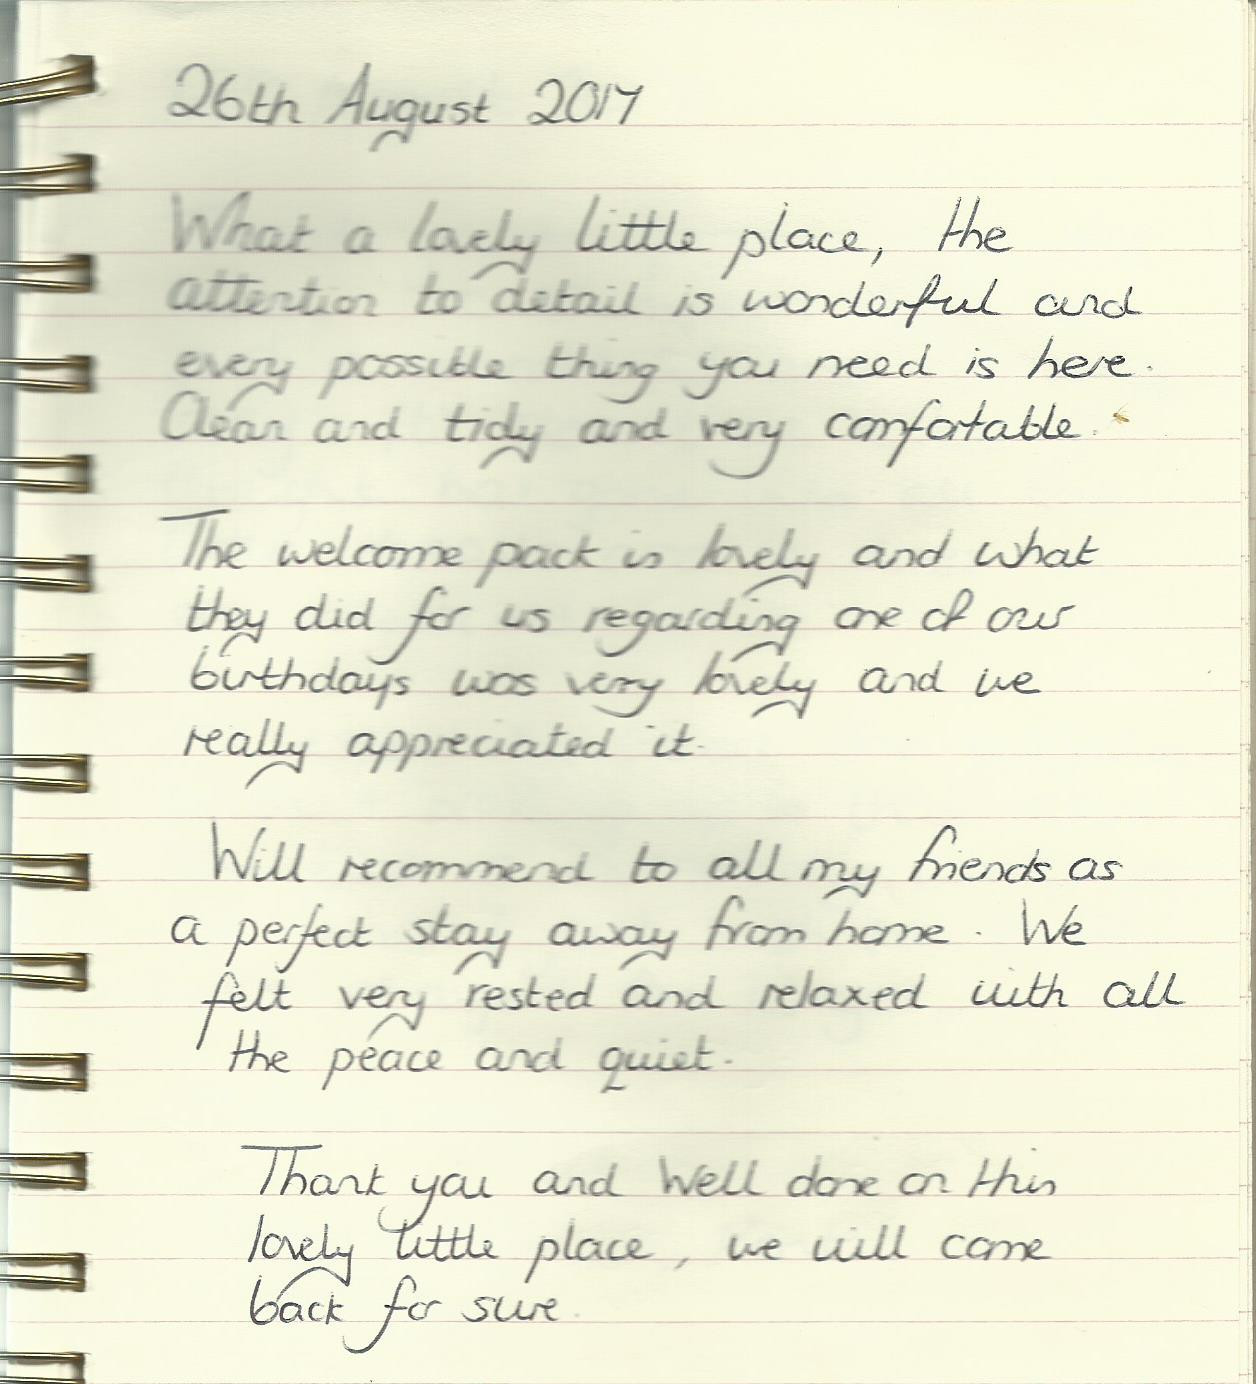 26th August 2017
What a lovely little place, the
attention to detail is wonderful and
every possible thing you need is here.
Clean and tidy and very comfortable.
The welcome pack is lovely and what
they did for us regarding one of our
birthdays was very lovely and we
really appreciated it.
Will recommend to all my friends as
a perfect stay away from home. We
felt very rested and relaxed with all
the peace and quiet.
Thank you and Well done on this
lovely little place, we will come
back for sure.